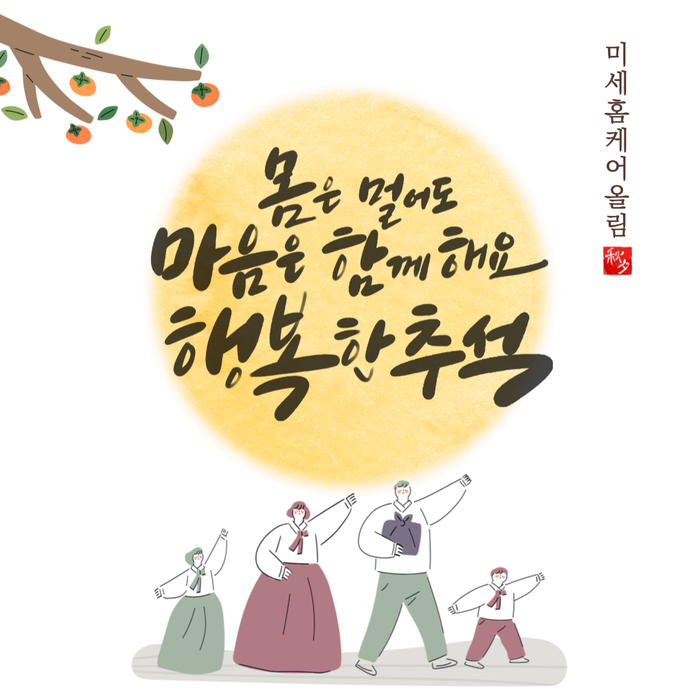 몸은 멀어도
마음은 함께해요
행복한 추석
미세홈케어올림
秋夕